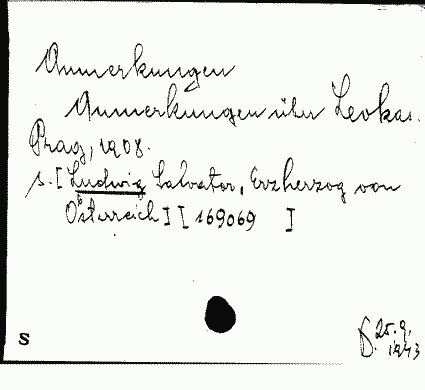 Anmerkungen
Anmerkungen über Levkas.
Prag, 1908.
s. [Ludwig Salvator, Erzherzog von
Österreich] [169069 ]
S
25.9.
1943